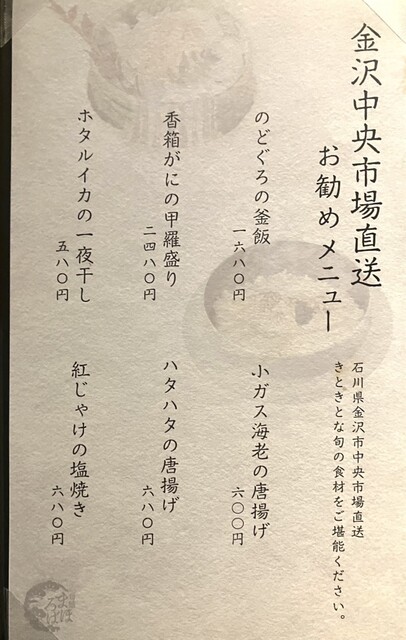 金沢中央市場直送
お勧めメニュー
石川県金沢市中央市場直送
きときとな旬の食材をご堪能ください。
のどぐろの釜飯
一六八〇円
小ガス海老の唐揚げ
六〇〇円
香箱がにの甲羅盛り
二四八〇円
ハタハタの唐揚げ
六八〇円
ホタルイカの一夜干し
五八〇円
紅じゃけの塩焼き
六八〇円